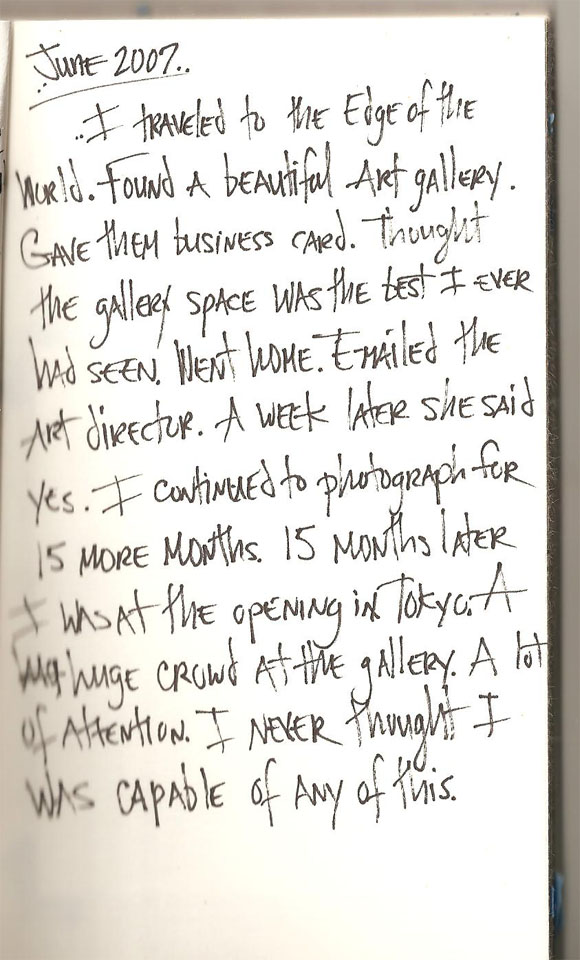 June 2007..
..I traveled to the Edge of the
World. Found a beautiful Art gallery.
Gave them business card. Thought
the gallery space was the best I ever
had seen. Went home. E-mailed the
Art director. A week later she said
yes. I continued to photograph for
15 more months. 15 months later
I was at the opening in Tokyo. A
huge crowd at the gallery. A lot
of attention. I never thought I
was capable of any of this.